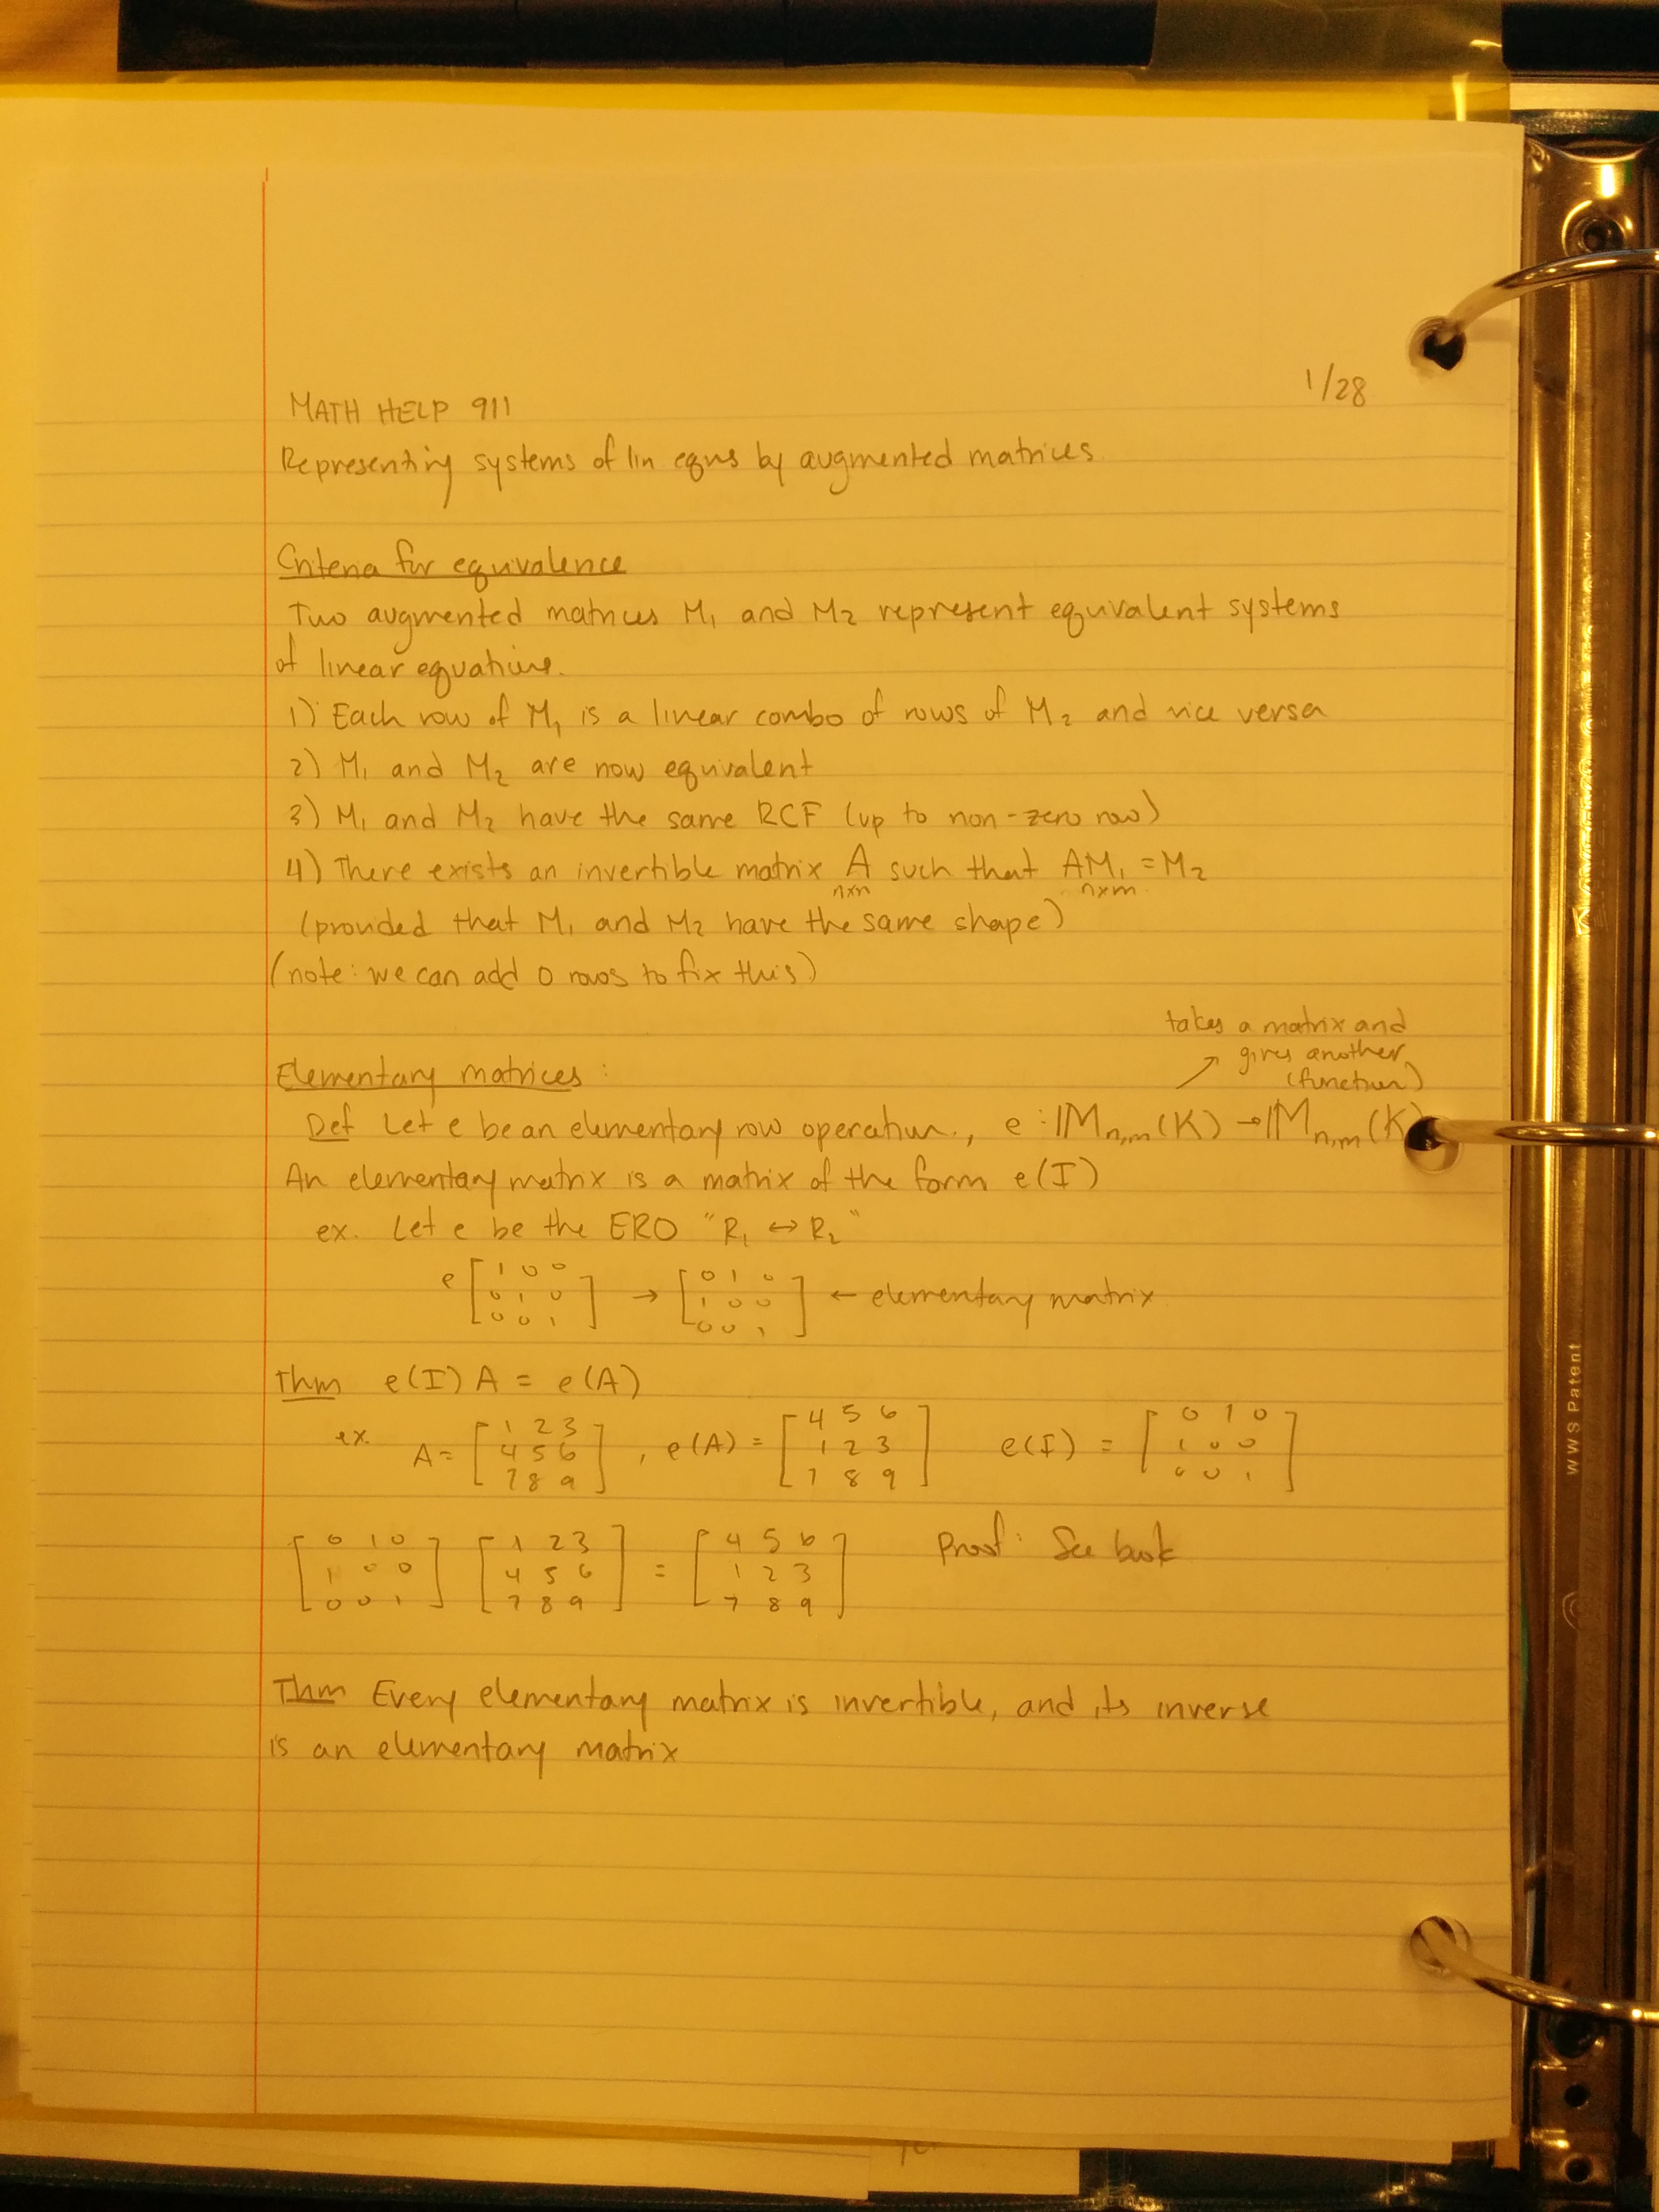 1/28
MATH HELP 911
Representing systems of lin eqns by augmented matrices
Criteria for equivalence
Two augmented matrices M₁ and M₂ represent equivalent systems
of linear equations.
1) Each row of M₁ is a linear combo of rows of M₂ and vice versa
2) M₁ and M₂ are now equivalent
3) M₁ and M₂ have the same RCF (up to non-zero row)
4) There exists an invertible matrix A such that AM₁ = M₂
n×n n×m
(provided that M₁ and M₂ have the same shape)
(note: we can add 0 rows to fix this)
takes a matrix and
↗ gives another
(function)
Elementary matrices:
Def Let e be an elementary row operation, e: 𝕄n,m(K) → 𝕄n,m(K
An elementary matrix is a matrix of the form e(I)
ex. Let e be the ERO "R₁ ↔ R₂"
e [1 0 0] → [0 1 0] ← elementary matrix
[0 1 0] [1 0 0]
[0 0 1] [0 0 1]
Thm e(I) A = e(A)
ex. A = [1 2 3], e(A) = [4 5 6] e(I) = [0 1 0]
[4 5 6] [1 2 3] [1 0 0]
[7 8 9] [7 8 9] [0 0 1]
[0 1 0] [1 2 3] = [4 5 6] Proof: See book
[1 0 0] [4 5 6] [1 2 3]
[0 0 1] [7 8 9] [7 8 9]
Thm Every elementary matrix is invertible, and its inverse
is an elementary matrix
WWS Patent